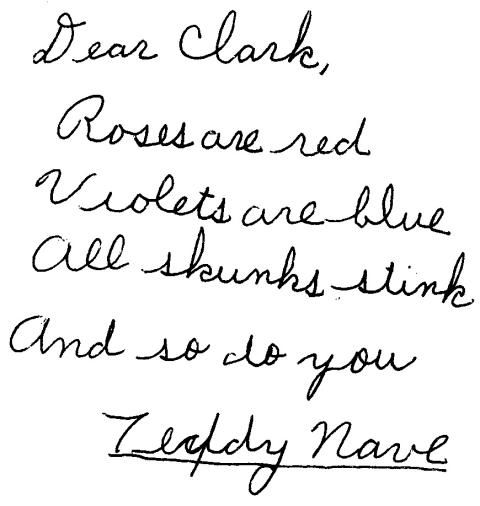 Dear Clark,
Roses are red
Violets are blue
All skunks stink
And so do you
Teddy Nave